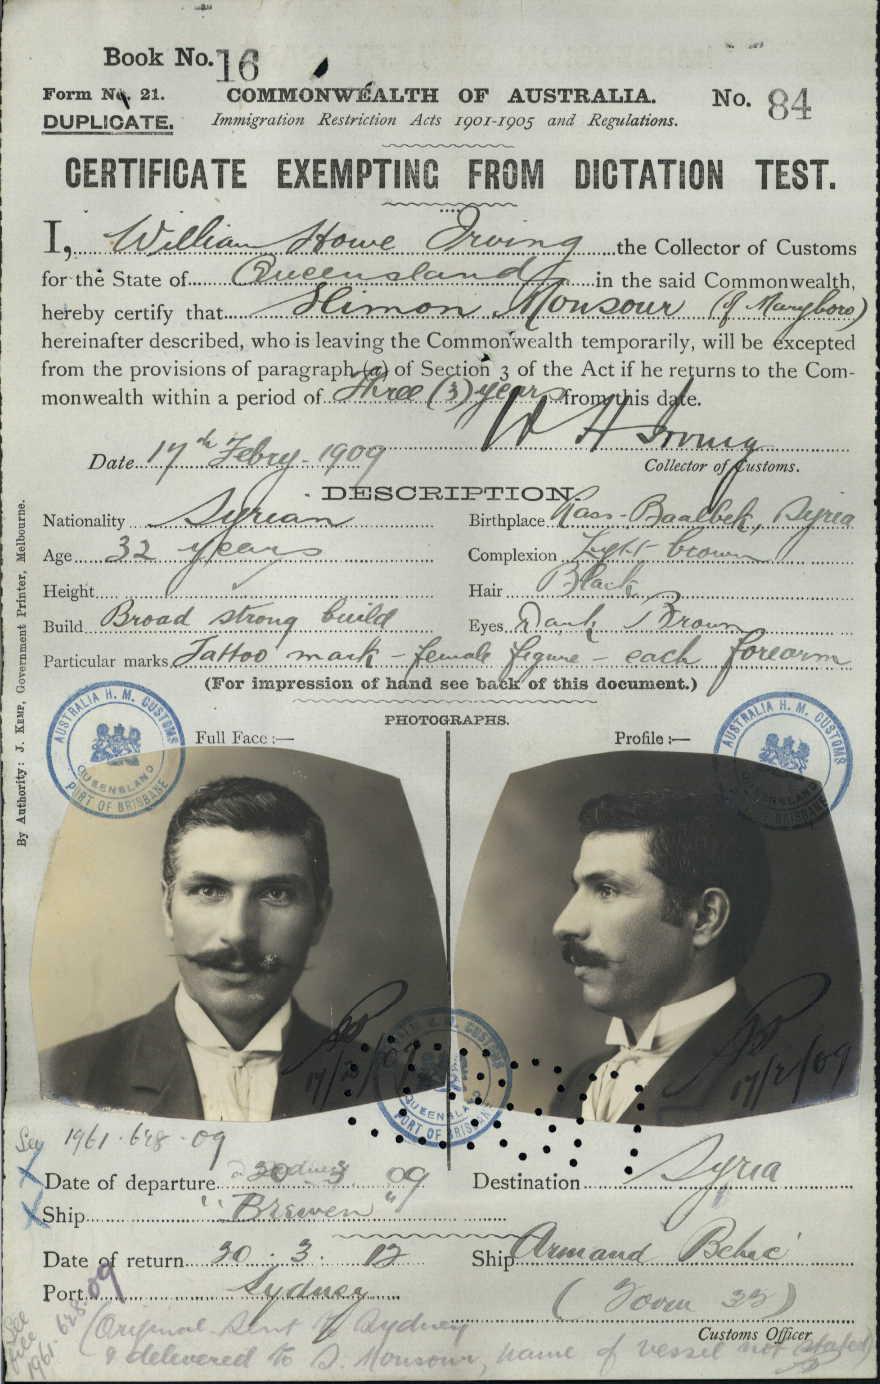 Book No. 16
Form No. 21. COMMONWEALTH OF AUSTRALIA. No. 84
DUPLICATE. Immigration Restriction Acts 1901-1905 and Regulations.
CERTIFICATE EXEMPTING FROM DICTATION TEST.
I, William Howe Irving the Collector of Customs
for the State of Queensland in the said Commonwealth,
hereby certify that Slimon Monsour (of Maryboro)
hereinafter described, who is leaving the Commonwealth temporarily, will be excepted
from the provisions of paragraph (a) of Section 3 of the Act if he returns to the Com-
monwealth within a period of Three (3) years from this date.
W H Irving
Date 17th Febry. 1909 Collector of Customs.
DESCRIPTION.
Nationality Syrian Birthplace Kass-Baalbek, Syria
Age 32 years Complexion Light brown
Height Hair Black
Build Broad strong build Eyes Dark Brown
Particular marks Tattoo mark - female figure - each forearm
(For impression of hand see back of this document.)
PHOTOGRAPHS.
Full Face :— Profile :—
AUSTRALIA H. M. CUSTOMS QUEENSLAND PORT OF BRISBANE
AUSTRALIA H. M. CUSTOMS QUEENSLAND PORT OF BRISBANE
By Authority: J. KEMP, Government Printer, Melbourne.
17/2/09
17/2/09
QUEENSLAND PORT OF BRISBANE
1961.628.09
Date of departure 20 3 09 Destination Syria
Ship "Bremen"
Date of return 20.3.12 Ship Armand Behic
Port Sydney (Form 32)
Customs Officer
(Original sent to Sydney
& delivered to S. Monsour, name of vessel not stated)
See file 1961.628.09